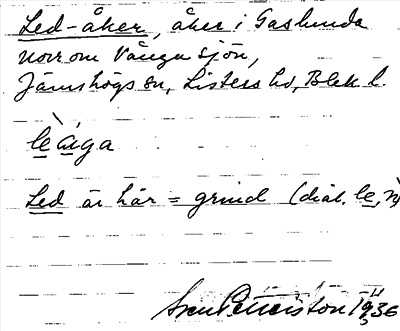 Led-åker, åker i Gaslunda
norr om Vånga sjön,
Jämshögs sn, Listers hd, Blek. l.
leåga
Led är här = grind (dial. le, n)
Sven Petterson 1936